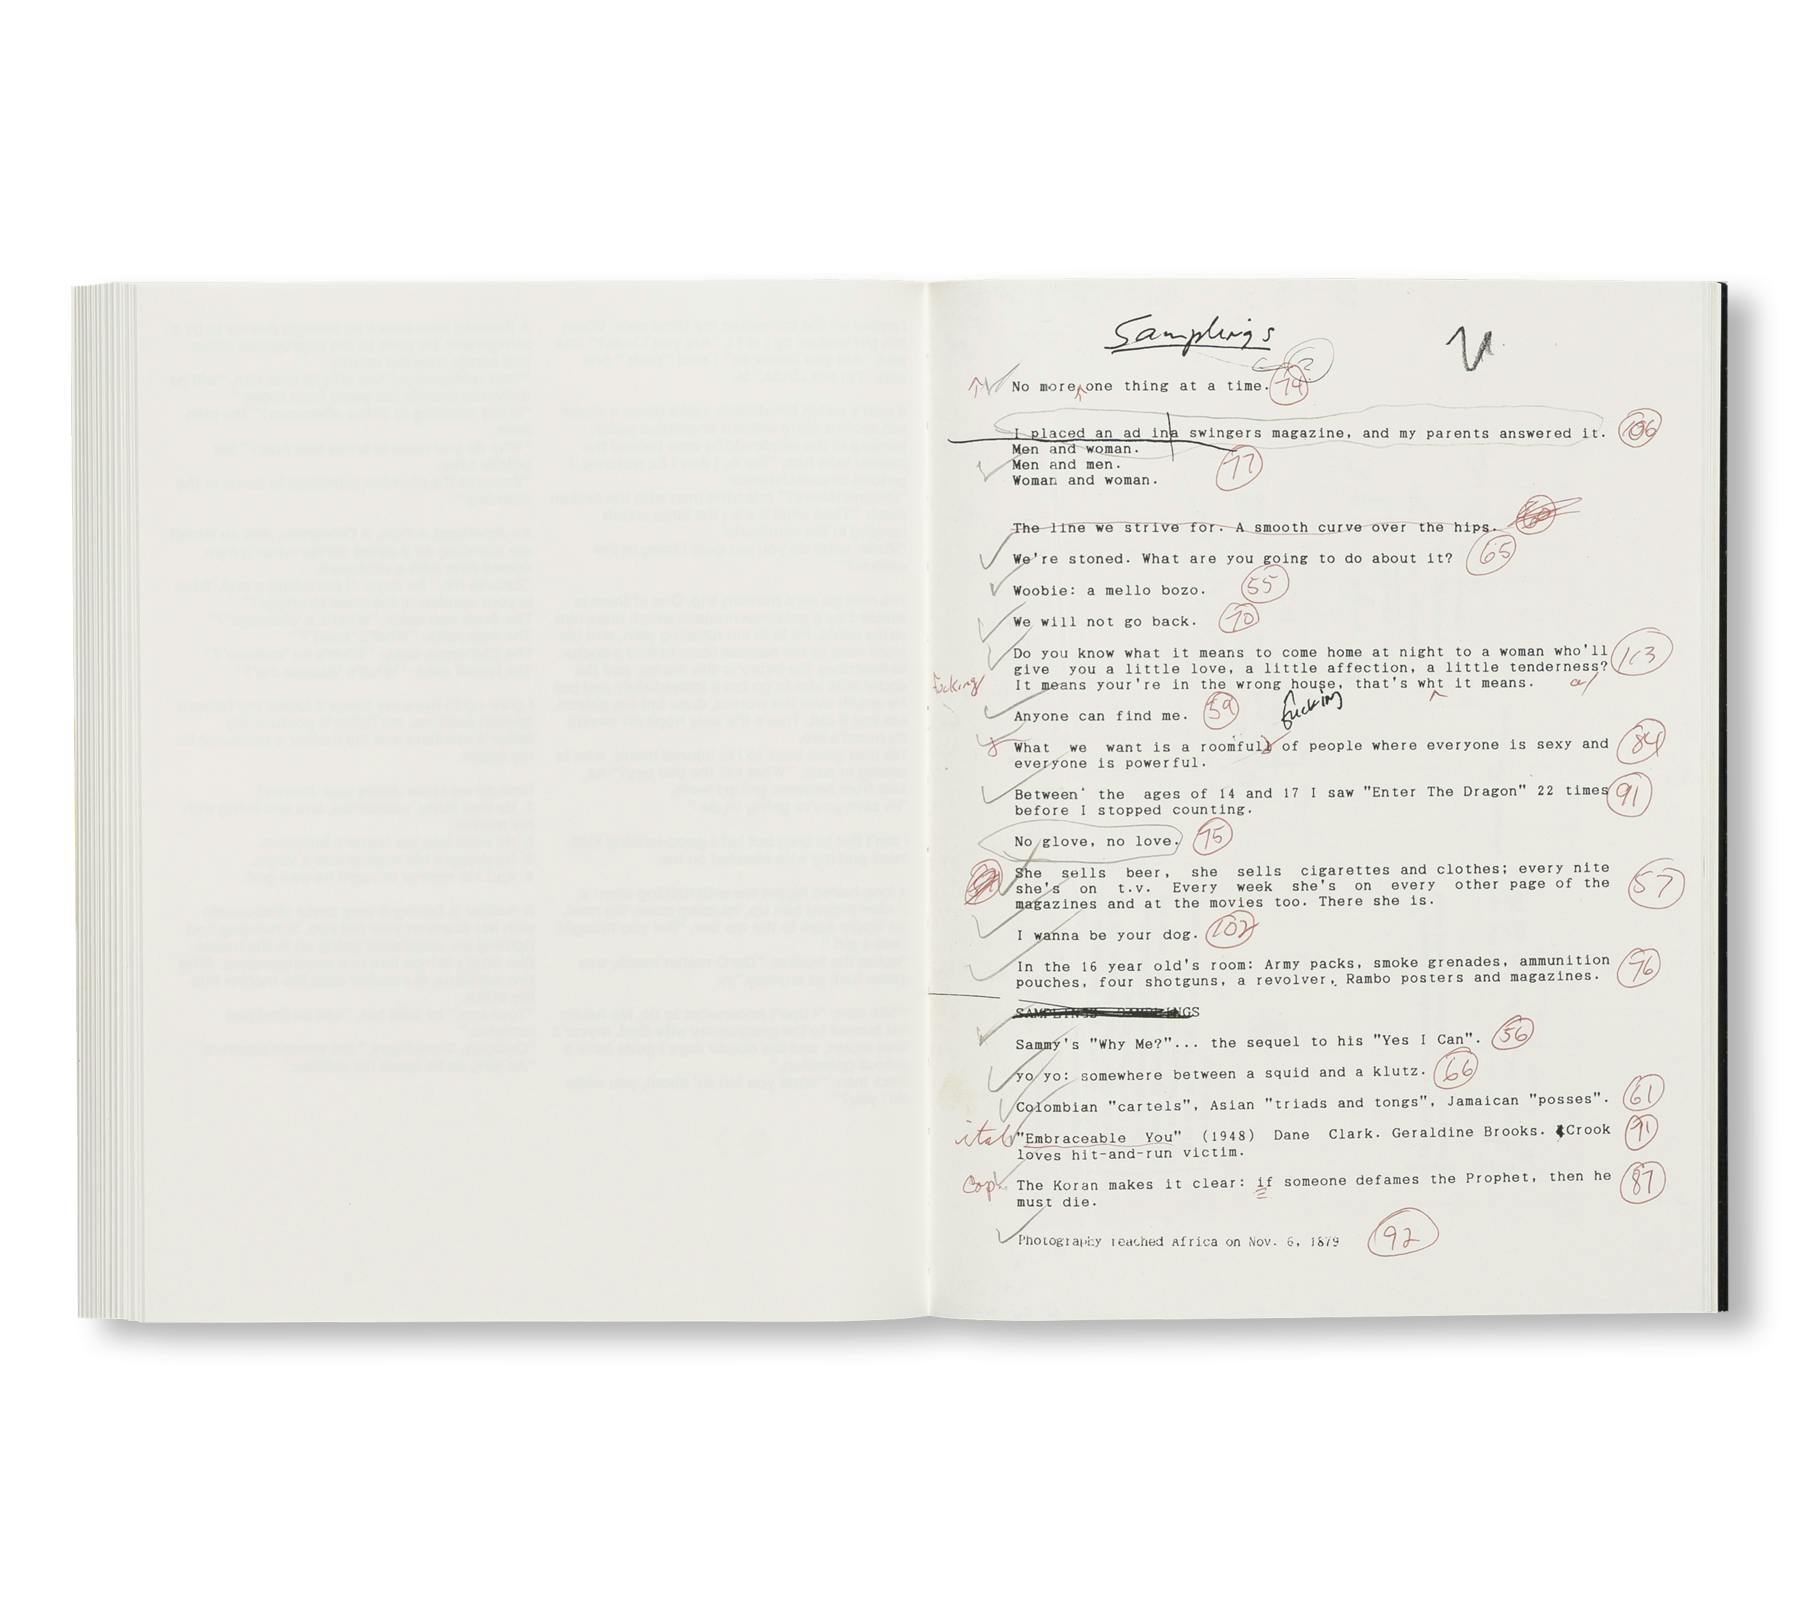 Samplings
No more one thing at a time. 74
I placed an ad in a swingers magazine, and my parents answered it. 106
Men and woman.
Men and men. 77
Woman and woman.
The line we strive for. A smooth curve over the hips.
We're stoned. What are you going to do about it? 65
Woobie: a mello bozo. 55
We will not go back. 70
Do you know what it means to come home at night to a woman who'll 113
give you a little love, a little affection, a little tenderness?
fucking It means your're in the wrong house, that's wht it means. a/
Anyone can find me. 59 fucking
What we want is a roomfull of people where everyone is sexy and 84
everyone is powerful.
Between the ages of 14 and 17 I saw "Enter The Dragon" 22 times 91
before I stopped counting.
No glove, no love. 75
She sells beer, she sells cigarettes and clothes; every nite 57
she's on t.v. Every week she's on every other page of the
magazines and at the movies too. There she is.
I wanna be your dog. 102
In the 16 year old's room: Army packs, smoke grenades, ammunition 76
pouches, four shotguns, a revolver, Rambo posters and magazines.
SAMPLINGS SAMPLINGS
Sammy's "Why Me?"... the sequel to his "Yes I Can". 56
yo yo: somewhere between a squid and a klutz. 66
Colombian "cartels", Asian "triads and tongs", Jamaican "posses". 61
ital "Embraceable You" (1948) Dane Clark. Geraldine Brooks. Crook 71
loves hit-and-run victim.
Cap The Koran makes it clear: if someone defames the Prophet, then he 87
must die.
Photography reached Africa on Nov. 6, 1879 92